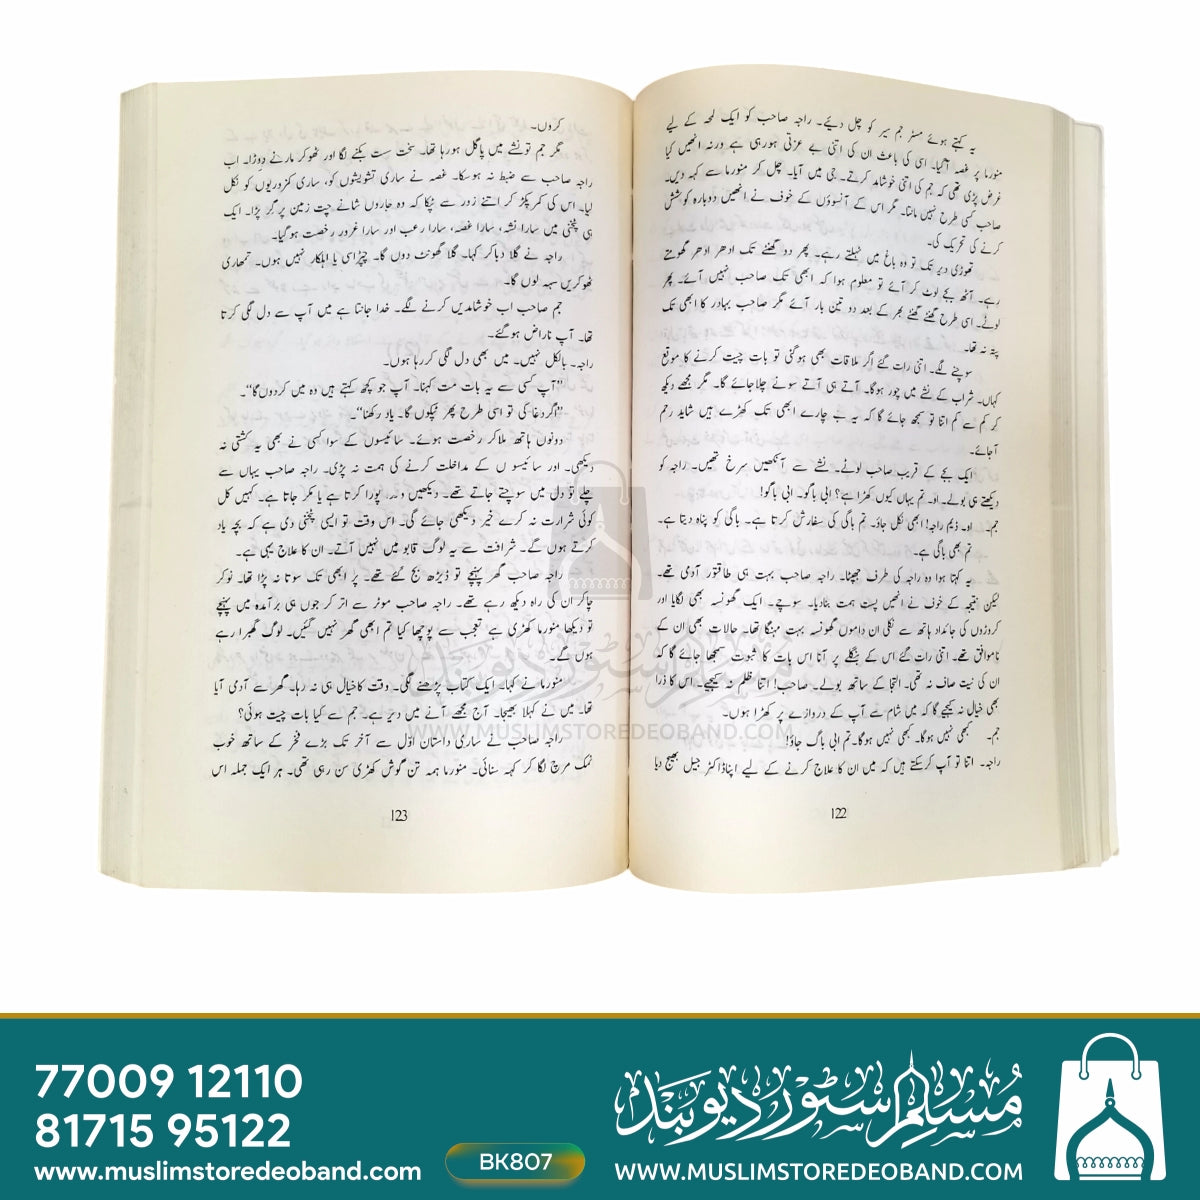 یہ کہتے ہوئے مسٹر جم سیر کو چل دیئے۔ راجہ صاحب کو ایک لمحہ کے لیے
منورما پر غصہ آگیا۔ اسی کی باعث ان کی اتنی بے عزتی ہورہی ہے ورنہ انھیں کیا
غرض پڑی تھی کہ جم کی اتنی خوشامد کرتے۔ جی میں آیا۔ چل کر منورما سے کہہ دیں۔
صاحب کسی طرح نہیں مانتا۔ مگر اس کے آنسوؤں کے خوف نے انھیں دوبارہ کوشش
کرنے کی تحریک کی۔
تھوڑی دیر تک تو وہ باغ میں ٹہلتے رہے۔ پھر دو گھنٹے تک ادھر ادھر گھومتے
رہے۔ آٹھ بجے لوٹ کر آئے تو معلوم ہوا کہ ابھی تک صاحب نہیں آئے۔ پھر
لوٹے۔ اسی طرح گھنٹے گھنٹے بھر کے بعد دو تین بار آئے مگر صاحب بہادر کا ابھی تک
پتہ نہ تھا۔
سوچنے لگے۔ اتنی رات گئے اگر ملاقات بھی ہوگئی تو بات چیت کرنے کا موقع
کہاں۔ شراب کے نشے میں چور ہوگا۔ آتے ہی آتے سونے چلا جائے گا۔ مگر مجھے دیکھ
کر کم سے کم اتنا تو سمجھ جائے گا کہ یہ بے چارے ابھی تک کھڑے ہیں شاید رحم
آجائے۔
ایک بجے کے قریب صاحب لوٹے۔ نشے سے آنکھیں سرخ تھیں۔ راجہ کو
دیکھتے ہی بولے۔ او۔ تم یہاں کیوں کھڑا ہے؟ ابی باگو۔ ابی باگو!
جم۔ او۔ ڈیم راجہ! ابھی نکل جاؤ۔ تم باگی کی سفارش کرتا ہے۔ باگی کو پناہ دیتا ہے۔
تم بھی باگی ہے۔
یہ کہتا ہوا وہ راجہ کی طرف جھپٹا۔ راجہ صاحب بہت ہی طاقتور آدمی تھے۔
لیکن نتیجہ کے خوف نے انھیں پست ہمت بنادیا۔ سوچے۔ ایک گھونسہ بھی لگایا اور
کروڑوں کی جائداد ہاتھ سے نکلی ان داموں گھونسہ بہت مہنگا تھا۔ حالات بھی ان کے
ناموافق تھے۔ اتنی رات گئے اس کے بنگلے پر آنا اس بات کا ثبوت سمجھا جائے گا کہ
ان کی نیت صاف نہ تھی۔ التجا کے ساتھ بولے۔ صاحب! اتنا ظلم نہ کیجیے۔ اس کا ذرا
بھی خیال نہ کیجیے گا کہ میں شام سے آپ کے دروازے پر کھڑا ہوں۔
جم۔ کبھی نہیں ہوگا۔ کبھی نہیں ہوگا۔ تم ابی باگ جاؤ!
راجہ۔ اتنا تو آپ کرسکتے ہیں کہ میں ان کا علاج کرنے کے لیے اپنا ڈاکٹر جیل بھیج دیا
122
کروں۔
مگر جم تو نشے میں پاگل ہورہا تھا۔ سخت ست بکنے لگا اور ٹھوکر مارنے دوڑا۔ اب
راجہ صاحب سے ضبط نہ ہوسکا۔ غصہ نے ساری تشویشوں کو، ساری کمزوریوں کو نگل
لیا۔ اس کی کمر پکڑ کر اتنے زور سے پٹکا کہ وہ چاروں شانے چت زمین پر گر پڑا۔ ایک
ہی پٹخنی میں سارا نشہ، سارا غصہ، سارا رعب اور سارا غرور رخصت ہوگیا۔
راجہ نے گلا دباکر کہا۔ گلا گھونٹ دوں گا۔ چپڑاسی یا اہلکار نہیں ہوں۔ تمھاری
ٹھوکریں سہہ لوں گا۔
جم صاحب اب خوشامدیں کرنے لگے۔ خدا جانتا ہے میں آپ سے دل لگی کرتا
تھا۔ آپ ناراض ہوگئے۔
راجہ۔ بالکل نہیں۔ میں بھی دل لگی کررہا ہوں۔
”آپ کسی سے یہ بات مت کہنا۔ آپ جو کچھ کہتے ہیں وہ میں کردوں گا“۔
”اگر دغا کی تو اسی طرح پھر پٹکوں گا۔ یاد رکھنا“۔
دونوں ہاتھ ملاکر رخصت ہوئے۔ سائیسوں کے سوا کسی نے بھی یہ کشتی نہ
دیکھی۔ اور سائیسوں کے مداخلت کرنے کی ہمت نہ پڑی۔ راجہ صاحب یہاں سے
چلے تو دل میں سوچتے جاتے تھے۔ دیکھیں وعدہ پورا کرتا ہے یا مکر جاتا ہے۔ کہیں کل
کوئی شرارت نہ کرے خیر دیکھی جائے گی۔ اس وقت تو ایسی پٹخنی دی ہے کہ بچہ یاد
کرتے ہوں گے۔ شرافت سے یہ لوگ قابو میں نہیں آتے۔ ان کا علاج یہی ہے۔
راجہ صاحب گھر پہنچے تو ڈیڑھ بج گئے تھے۔ پر ابھی تک سوتا نہ پڑا تھا۔ نوکر
چاکر ان کی راہ دیکھ رہے تھے۔ راجہ صاحب موٹر سے اتر کر جوں ہی برآمدہ میں پہنچے
تو دیکھا منورما کھڑی ہے تعجب سے پوچھا کیا تم ابھی گھر نہیں گئیں۔ لوگ گھبرا رہے
ہوں گے۔
منورما نے کہا۔ ایک کتاب پڑھنے لگی۔ وقت کا خیال ہی نہ رہا۔ گھر سے آدمی آیا
تھا۔ میں نے کہلا بھیجا۔ آج مجھے آنے میں دیر ہے۔ جم سے کیا بات چیت ہوئی؟
راجہ صاحب نے ساری داستان اوّل سے آخر تک بڑے فخر کے ساتھ خوب
نمک مرچ لگا کر کہہ سنائی۔ منورما ہمہ تن گوش کھڑی سن رہی تھی۔ ہر ایک جملہ اس
123
مسلم سٹور دیوبند
WWW.MUSLIMSTOREDEOBAND.COM
77009 12110
81715 95122
www.muslimstoredeoband.com
BK807
مسلم سٹور دیوبند
WWW.MUSLIMSTOREDEOBAND.COM